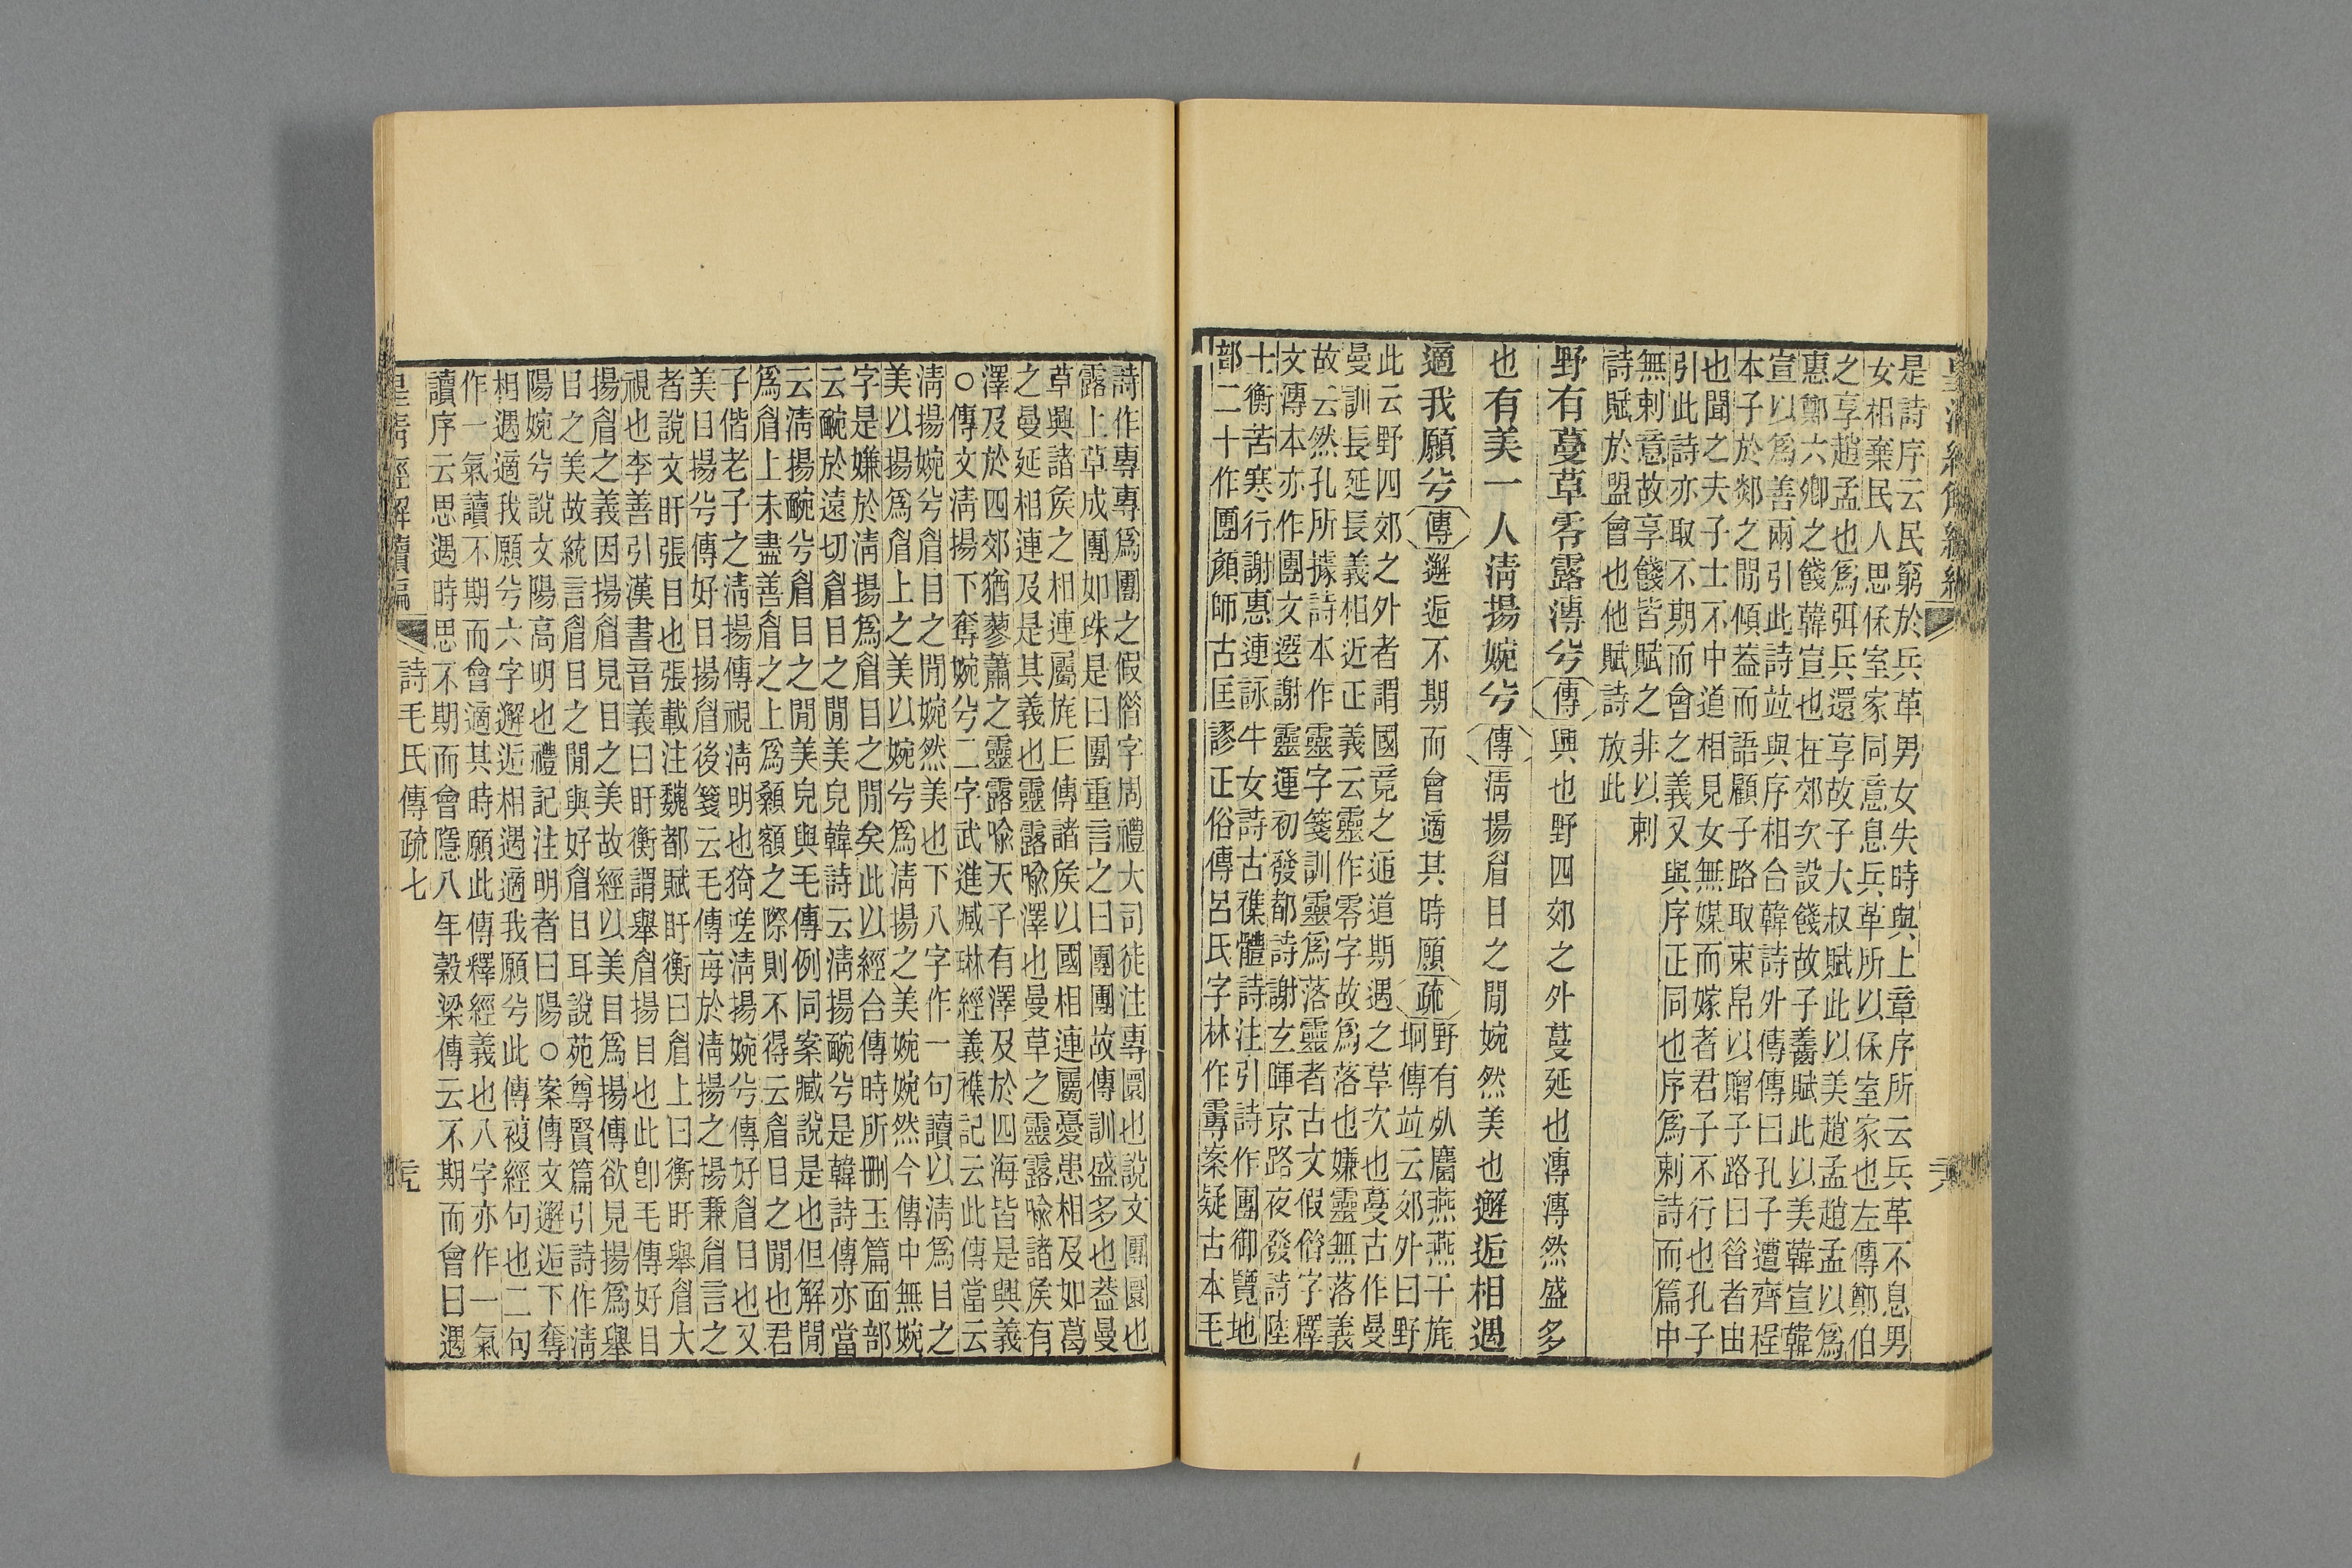 是詩序云民窮於兵革男女失時與上章序所云兵革不息男
女相棄民人思保室家同意息兵革所以保室家也左傳鄭伯
之享趙孟也爲弭兵還享故子大叔賦此以美趙孟趙孟以爲
惠鄭六卿之餞韓宣也在郊次設餞故子齹賦此以美韓宣韓
宣以爲善兩引此詩竝與序相合韓詩外傳傳曰孔子遭齊程
本子於郯之閒傾葢而語顧子路取束帛以贈子路曰昝者由
也聞之夫子士不中道相見女無媒而嫁者君子不行也孔子
引此詩亦取不期而會之義又與序正同也序爲刺詩而篇中
無刺意故享餞皆賦之非以刺
詩賦於盟會也他賦詩放此
野有蔓草零露漙兮傳興也野四郊之外蔓延也漙漙然盛多
也有美一人淸揚婉兮傳淸揚眉目之閒婉然美也邂逅相遇
適我願兮傳邂逅不期而會適其時願疏野有㱾麕燕燕干旄
坰傳竝云郊外曰野
此云野四郊之外者謂國竟之逎道期遇之草次也蔓古作曼
曼訓長延長義相近正義云靈作零字故爲落也嫌靈無落義
故云然孔所據詩本作靈字箋訓靈爲落靈者古文假偺字釋
文漙本亦作團文選謝靈運初發都詩謝玄暉京路夜發詩陸
士衡苦寒行謝惠連詠牛女詩古襍體詩注引詩作團御覽地
部二十作團顏師古匡謬正俗傳呂氏字林作䨦案疑古本毛
詩作專專爲團之假偺字周禮大司徒注專圜也說文團圜也
露上草成團如珠是曰團重言之曰團團故傳訓盛多也葢曼
草興諸矦之相連屬旄丘傳諸矦以國相連屬憂患相及如葛
之曼延相連及是其義也靈露喩澤也曼草之靈露喩諸矦有
澤及於四郊猶蓼蕭之靈露喩天子有澤及於四海皆是興義
○傳文淸揚下奪婉兮二字武進臧琳經義襍記云此傳當云
淸揚婉兮眉目之閒婉然美也下八字作一句讀以淸爲目之
美以揚爲眉上之美以婉兮爲淸揚之美婉婉然今傳中無婉
字是嫌於淸揚爲眉目之閒矣此以經合傳時所刪玉篇面部
云䩊於遠切眉目之閒美皃韓詩云淸揚䩊兮是韓詩傳亦當
云淸揚䩊兮眉目之閒美皃與毛傳例同案臧說是也但解閒
爲眉上未盡善眉之上爲顙額之際則不得云眉目之閒也君
子偕老子之淸揚傳視淸明也猗嗟淸揚婉兮傳好眉目也又
美目揚兮傳好目揚眉後箋云毛傳每於淸揚之揚兼眉言之
者說文盱張目也張載注魏都賦盱衡曰眉上曰衡盱舉眉大
視也李善引漢書音義曰盱衡謂舉眉揚目也此卽毛傳好目
揚眉之義因揚眉見目之美故經以美目爲揚傳欲見揚爲舉
目之美故統言眉目之閒與好眉目耳說苑尊賢篇引詩作淸
陽婉兮說文陽高明也禮記注明者曰陽○案傳文邂逅下奪
相遇適我願兮六字邂逅相遇適我願兮此傳複經句也二句
作一氣讀不期而會適其時願此傳釋經義也八字亦作一氣
讀序云思遇時思不期而會隱八年穀梁傳云不期而會曰遇
皇淸經解續編 詩毛氏傳疏七